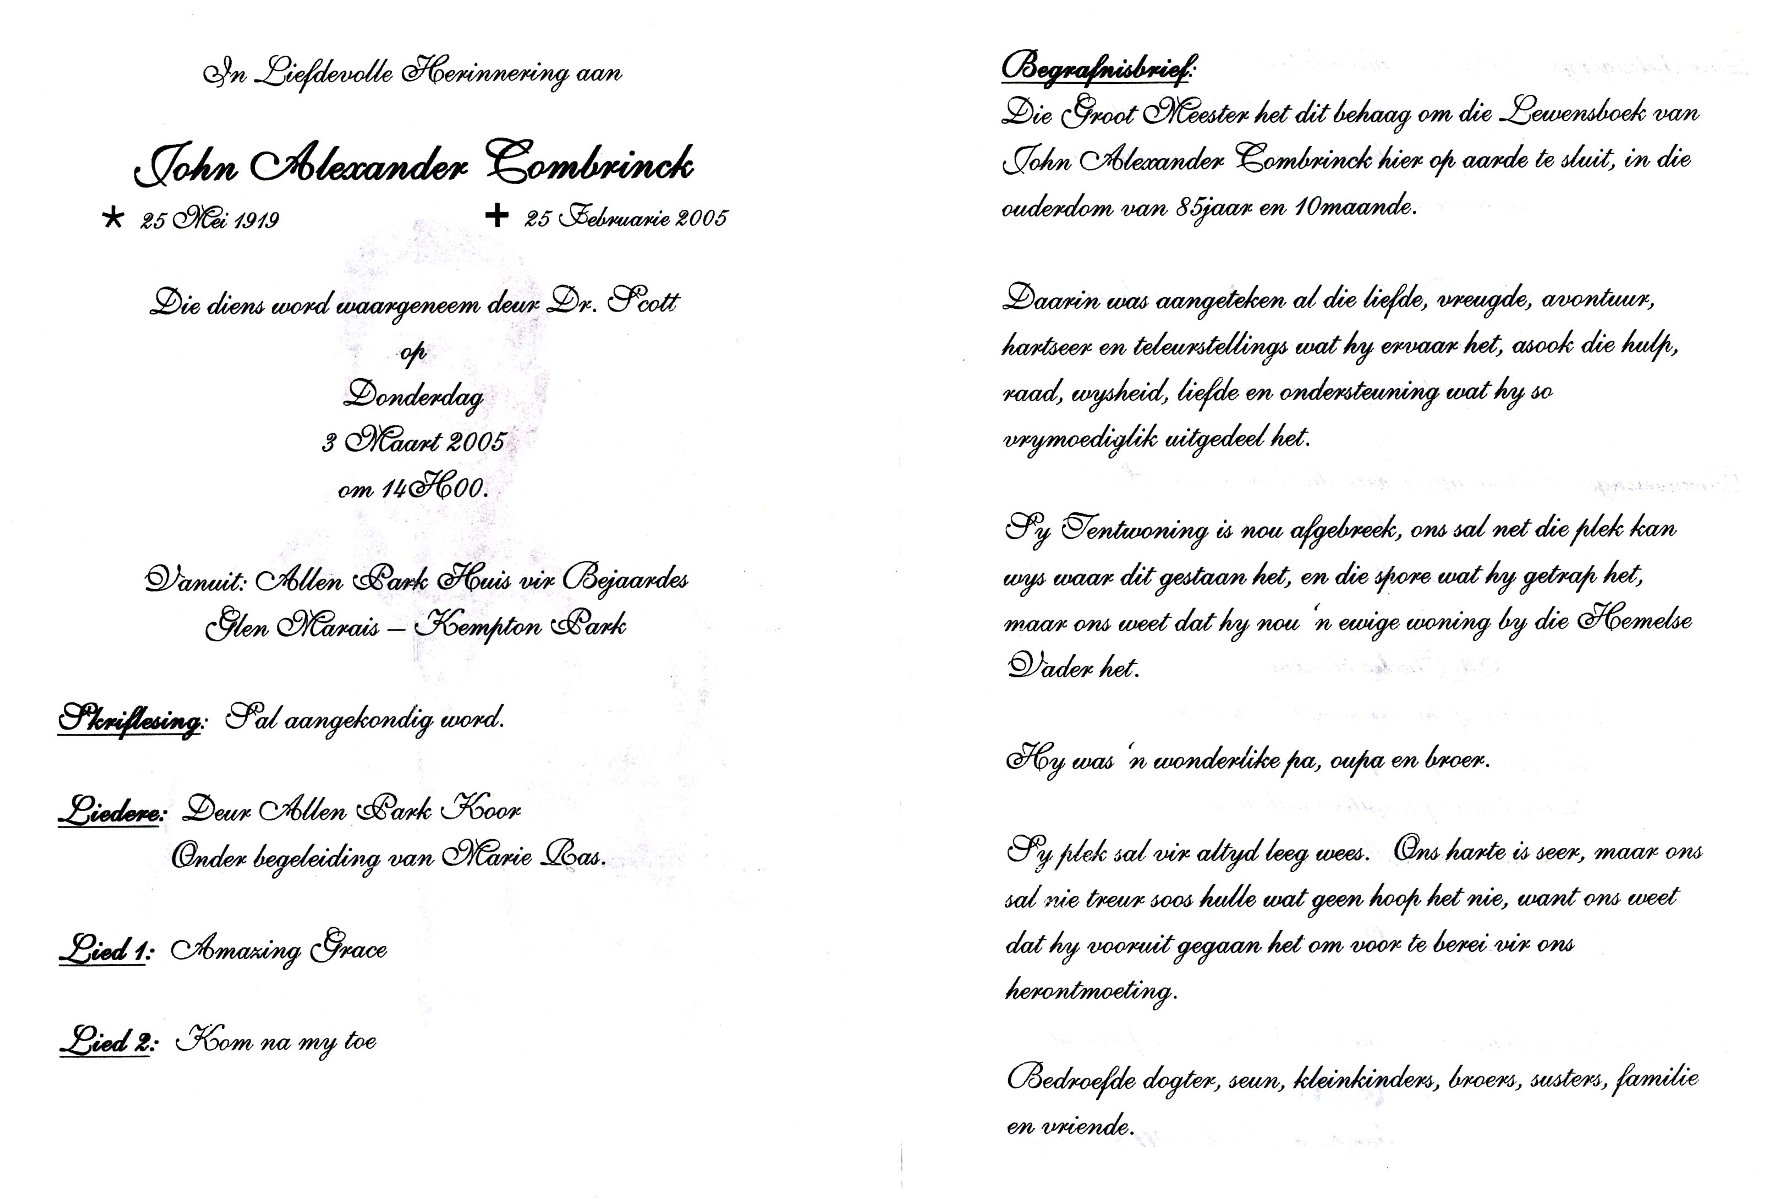 In Liefdevolle Herinnering aan
John Alexander Combrinck
* 25 Mei 1919 + 25 Februarie 2005
Die diens word waargeneem deur Dr. Scott
op
Donderdag
3 Maart 2005
om 14H00.
Vanuit: Allen Park Huis vir Bejaardes
Glen Marais – Kempton Park
Skriflesing: Sal aangekondig word.
Liedere: Deur Allen Park Koor
Onder begeleiding van Marie Ras.
Lied 1: Amazing Grace
Lied 2: Kom na my toe
Begrafnisbrief:
Die Groot Meester het dit behaag om die Lewensboek van
John Alexander Combrinck hier op aarde te sluit, in die
ouderdom van 85jaar en 10maande.
Daarin was aangeteken al die liefde, vreugde, avontuur,
hartseer en teleurstellings wat hy ervaar het, asook die hulp,
raad, wysheid, liefde en ondersteuning wat hy so
vrymoediglik uitgedeel het.
Sy Tentwoning is nou afgebreek, ons sal net die plek kan
wys waar dit gestaan het, en die spore wat hy getrap het,
maar ons weet dat hy nou ‘n ewige woning by die Hemelse
Vader het.
Hy was ‘n wonderlike pa, oupa en broer.
Sy plek sal vir altyd leeg wees. Ons harte is seer, maar ons
sal nie treur soos hulle wat geen hoop het nie, want ons weet
dat hy vooruit gegaan het om voor te berei vir ons
herontmoeting.
Bedroefde dogter, seun, kleinkinders, broers, susters, familie
en vriende.